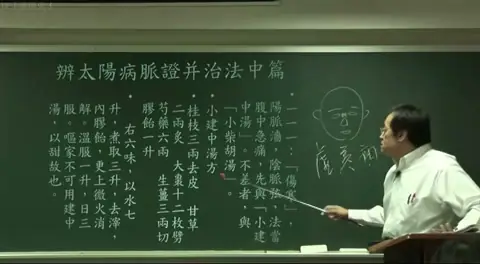 辨太陽病脈證并治法中篇
一一一：「傷寒」，
陽脈濇，陰脈弦，法當
腹中急痛，先與「小建
中湯」。不差者，與
「小柴胡湯」。
小建中湯方
桂枝三兩去皮 甘草
二兩炙 大棗十二枚劈
芍藥六兩 生薑三兩切
膠飴一升
右六味，以水七
升，煮取三升，去滓，
內膠飴，更上微火消
解。溫服一升，日三
服。嘔家不可用建中
湯。以甜故也。